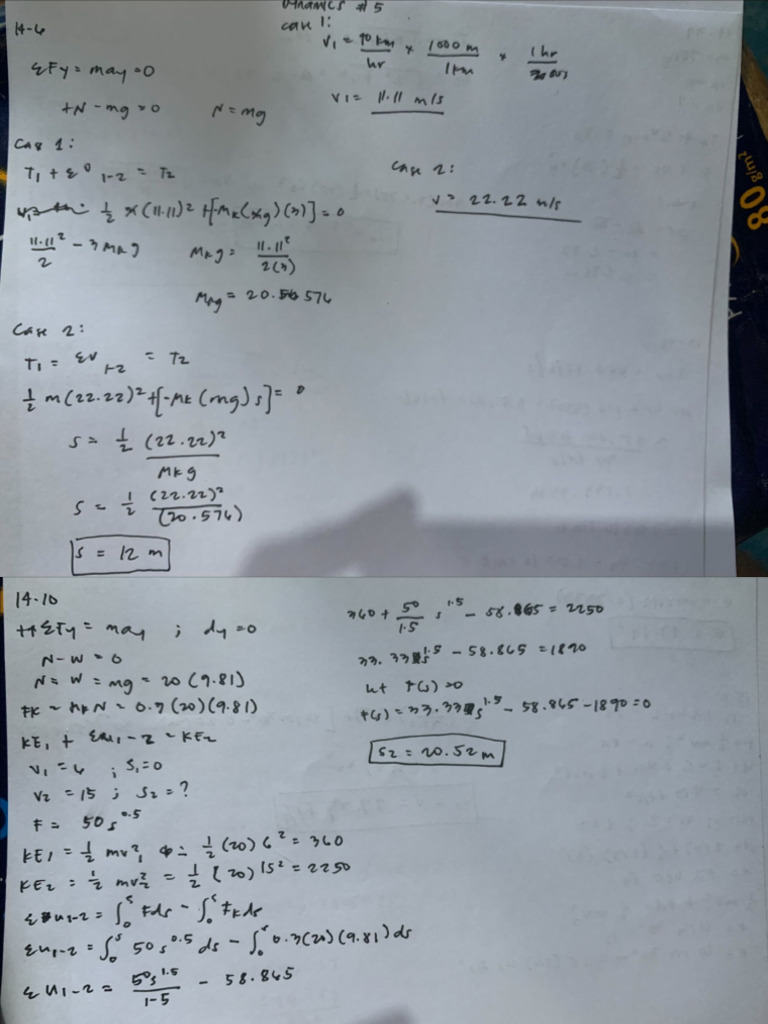 Dynamics #5
14-6
case 1:
V1 = 90 km/hr × 1000 m/1 km × 1 hr
ΣFy = may = 0
V1 = 11.11 m/s
+N - mg = 0 N = mg
Case 1:
T1 + Σ 1-2 = T2
case 2:
V = 22.22 m/s
1/2 (11.11)² +[-Mk(g)(3)] = 0
11.11²/2 - 3Mkg Mkg = 11.11²/2(3)
Mkg = 20.576
Case 2:
T1 = ΣU1-2 = T2
1/2 m(22.22)² +[-Mk(mg)s] = 0
s = 1/2 (22.22)²/Mkg
s = 1/2 (22.22)²/(20.576)
s = 12 m
80 g/m²
14-10
+↑ΣFy = may ; dy = 0
N - W = 0
N = W = mg = 20(9.81)
Fk = MkN = 0.3(20)(9.81)
KE1 + ΣU1-2 = KE2
V1 = 6 ; S1 = 0
V2 = 15 ; S2 = ?
F = 50s^0.5
KE1 = 1/2 mv²1 = 1/2 (20)6² = 360
KE2 = 1/2 mv²2 = 1/2 (20)15² = 2250
ΣU1-2 = ∫0^s Fds - ∫0^s Fkds
ΣU1-2 = ∫0^s 50s^0.5 ds - ∫0^s 0.3(20)(9.81)ds
ΣU1-2 = 50s^1.5/1-5 - 58.865
360 + 50/1.5 s^1.5 - 58.865 = 2250
33.33s^1.5 - 58.865 = 1890
let f(s) = 0
f(s) = 33.33s^1.5 - 58.865 - 1890 = 0
S2 = 20.52 m